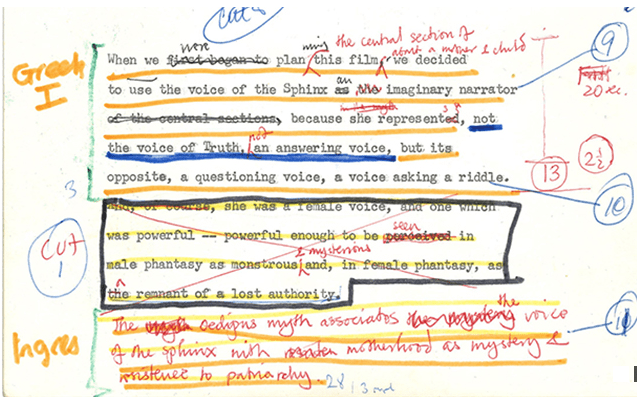 the central section of
were
about a mother & child
Greek
I
When we first began to planning this film, we decided
9
an
to use the voice of the Sphinx as the imaginary narrator
20 sec.
of the central sections, because she represented, not
not
the voice of Truth, an answering voice, but its
2½
13
opposite, a questioning voice, a voice asking a riddle.
3
10
and, of course, she was a female voice, and one which
seen
was powerful -- powerful enough to be perceived in
CUT
1
& mysterious
male phantasy as monstrous and, in female phantasy, as
the remnant of a lost authority.
the
The Oedipus myth associates voice
Ingres
of the Sphinx with motherhood as mystery &
resistence to patriarchy.
28